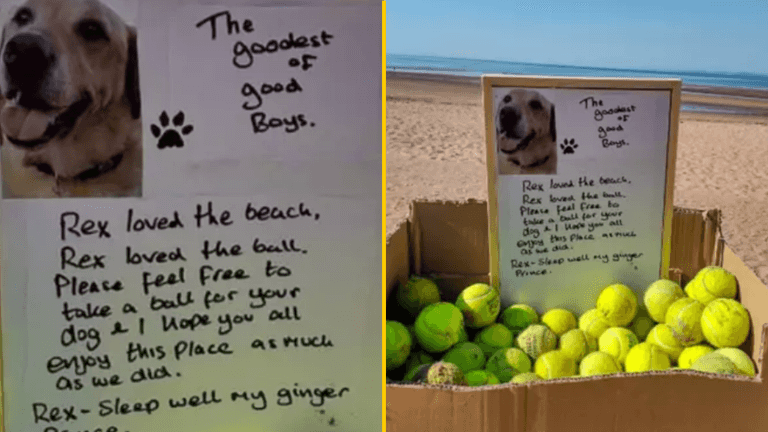 The
goodest
of
good
Boys.
Rex loved the beach,
Rex loved the ball.
Please feel free to
take a ball for your
dog & I hope you all
enjoy this Place as much
as we did.
Rex - Sleep well my ginger
Prince.
The
goodest
of
good
Boys.
Rex loved the beach,
Rex loved the ball.
Please feel free to
take a ball for your
dog & I hope you all
enjoy this Place as much
as we did.
Rex - Sleep well my ginger
Prince.